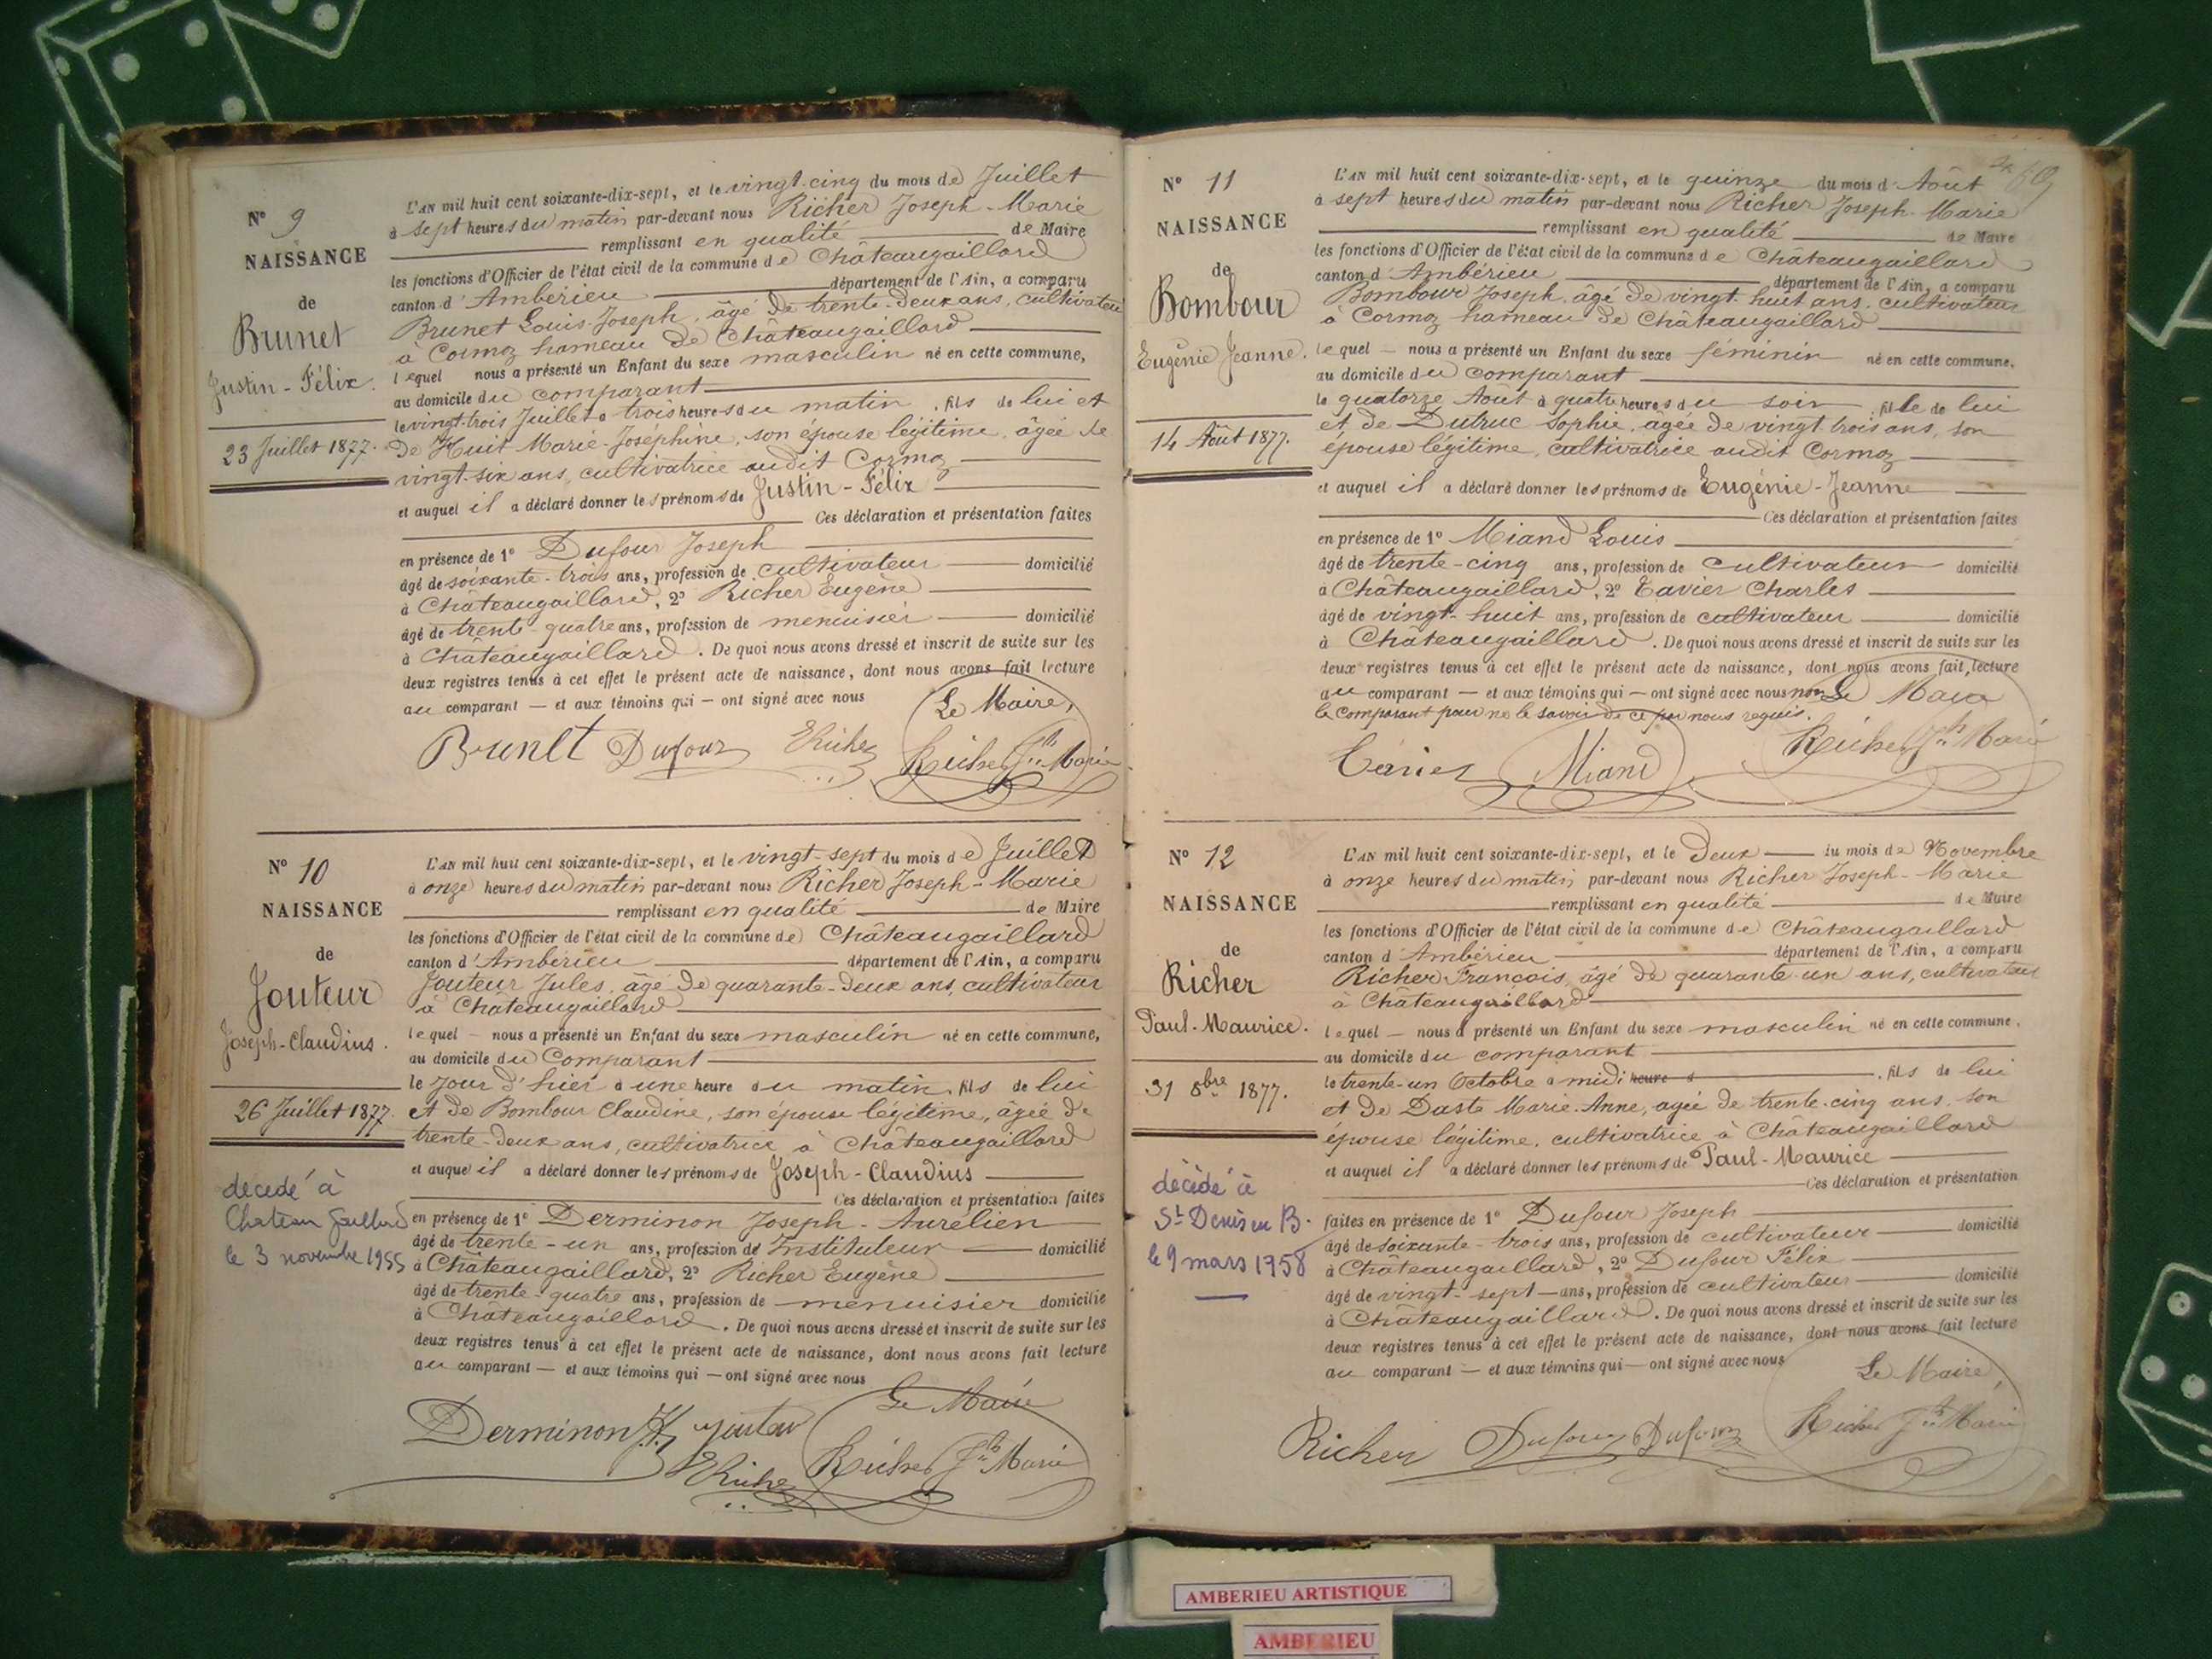 N° 9
NAISSANCE
de
Brunet
Justin-Félix.
23 Juillet 1877.
L'AN mil huit cent soixante-dix-sept, et le vingt-cinq du mois de Juillet
à sept heures du matin par-devant nous Richer Joseph-Marie
remplissant en qualité de Maire
les fonctions d'Officier de l'état civil de la commune de Châteaugaillard
canton d'Ambérieu département de l'Ain, a comparu
Brunet Louis-Joseph, âgé de trente-deux ans, cultivateur
à Cormoz hameau de Châteaugaillard
lequel nous a présenté un Enfant du sexe masculin né en cette commune,
au domicile du comparant
le vingt-trois Juillet à trois heures du matin, fils de lui et
de Huit Marie-Joséphine, son épouse légitime, âgée de
vingt-six ans, cultivatrice audit Cormoz
et auquel il a déclaré donner les prénoms de Justin-Félix
Ces déclaration et présentation faites
en présence de 1° Dufour Joseph
âgé de soixante-trois ans, profession de cultivateur domicilié
à Châteaugaillard, 2° Richer Eugène
âgé de trente-quatre ans, profession de menuisier domicilié
à Châteaugaillard. De quoi nous avons dressé et inscrit de suite sur les
deux registres tenus à cet effet le présent acte de naissance, dont nous avons fait lecture
au comparant — et aux témoins qui — ont signé avec nous
Le Maire,
Brunet Dufour ERicher Richer Jh Marie
N° 10
NAISSANCE
de
Jouteur
Joseph-Claudius.
26 Juillet 1877.
décédé à
Chateau Gaillard
le 3 novembre 1955
L'AN mil huit cent soixante-dix-sept, et le vingt-sept du mois de Juillet
à onze heures du matin par-devant nous Richer Joseph-Marie
remplissant en qualité de Maire
les fonctions d'Officier de l'état civil de la commune de Châteaugaillard
canton d'Ambérieu département de l'Ain, a comparu
Jouteur Jules, âgé de quarante-deux ans, cultivateur
à Châteaugaillard
lequel — nous a présenté un Enfant du sexe masculin né en cette commune,
au domicile du Comparant
le jour d'hier à une heure du matin, fils de lui
et de Bombour Claudine, son épouse légitime, âgée de
trente-deux ans, cultivatrice à Châteaugaillard
et auquel il a déclaré donner les prénoms de Joseph-Claudius
Ces déclaration et présentation faites
en présence de 1° Derminon Joseph-Aurélien
âgé de trente-un ans, profession de Instituteur domicilié
à Châteaugaillard, 2° Richer Eugène
âgé de trente-quatre ans, profession de menuisier domicilié
à Châteaugaillard. De quoi nous avons dressé et inscrit de suite sur les
deux registres tenus à cet effet le présent acte de naissance, dont nous avons fait lecture
au comparant — et aux témoins qui — ont signé avec nous
Le Maire
Derminon Jouteur Richer Jh Marie
ERicher
N° 11
NAISSANCE
de
Bombour
Eugénie Jeanne.
14 Août 1877.
L'AN mil huit cent soixante-dix-sept, et le quinze du mois d'Août
à sept heures du matin par-devant nous Richer Joseph-Marie
remplissant en qualité de Maire
les fonctions d'Officier de l'état civil de la commune de Châteaugaillard
canton d'Ambérieu département de l'Ain, a comparu
Bombour Joseph, âgé de vingt-huit ans, cultivateur
à Cormoz hameau de Châteaugaillard
lequel — nous a présenté un Enfant du sexe féminin né en cette commune,
au domicile du comparant
le quatorze Août à quatre heures du soir, fille de lui
et de Dutruc Sophie, âgée de vingt-trois ans, son
épouse légitime, cultivatrice audit Cormoz
et auquel il a déclaré donner les prénoms de Eugénie-Jeanne
Ces déclaration et présentation faites
en présence de 1° Miand Louis
âgé de trente-cinq ans, profession de cultivateur domicilié
à Châteaugaillard, 2° Tavier Charles
âgé de vingt-huit ans, profession de cultivateur domicilié
à Châteaugaillard. De quoi nous avons dressé et inscrit de suite sur les
deux registres tenus à cet effet le présent acte de naissance, dont nous avons fait lecture
au comparant — et aux témoins qui — ont signé avec nous non Le Maire
le comparant pour ne le savoir de ce par nous requis.
Tavier Miand Richer Jh Marie
N° 12
NAISSANCE
de
Richer
Paul-Maurice.
31 8bre 1877.
décédé à
St Denis en B.
le 9 mars 1958
L'AN mil huit cent soixante-dix-sept, et le deux du mois de Novembre
à onze heures du matin par-devant nous Richer Joseph-Marie
remplissant en qualité de Maire
les fonctions d'Officier de l'état civil de la commune de Châteaugaillard
canton d'Ambérieu département de l'Ain, a comparu
Richer François, âgé de quarante-un ans, cultivateur
à Châteaugaillard
lequel — nous a présenté un Enfant du sexe masculin né en cette commune,
au domicile du comparant
le trente-un Octobre à midi heure, fils de lui
et de Daste Marie-Anne, agée de trente-cinq ans, son
épouse légitime, cultivatrice à Châteaugaillard
et auquel il a déclaré donner les prénoms de Paul-Maurice
Ces déclaration et présentation
faites en présence de 1° Dufour Joseph
âgé de soixante-trois ans, profession de cultivateur domicilié
à Châteaugaillard, 2° Dufour Félix
âgé de vingt-sept — ans, profession de cultivateur domicilié
à Châteaugaillard. De quoi nous avons dressé et inscrit de suite sur les
deux registres tenus à cet effet le présent acte de naissance, dont nous avons fait lecture
au comparant — et aux témoins qui — ont signé avec nous
Le Maire,
Richer Dufour Dufour Richer Jh Marie
AMBERIEU ARTISTIQUE
AMBERIEU